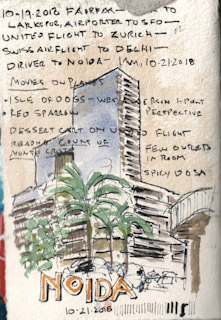 10-19-2018 FAIRFAX — TO
LARKSPUR, AIRPORTER TO SFO —
UNITED FLIGHT TO ZURICH —
SWISS AIR FLIGHT TO DELHI —
DRIVER TO NOIDA - 1AM, 10/21/2018
MOVIES ON PLANES
• ISLE OF DOGS - WES ANDERSON
• RED SPARROW
PERSPECTIVE
DESSERT CART ON UNITED FLIGHT
READING COUNT OF
MONTE CRISTO
FEW OUTLETS
IN ROOM
SPICY DOSA
NOIDA
10-21-2018